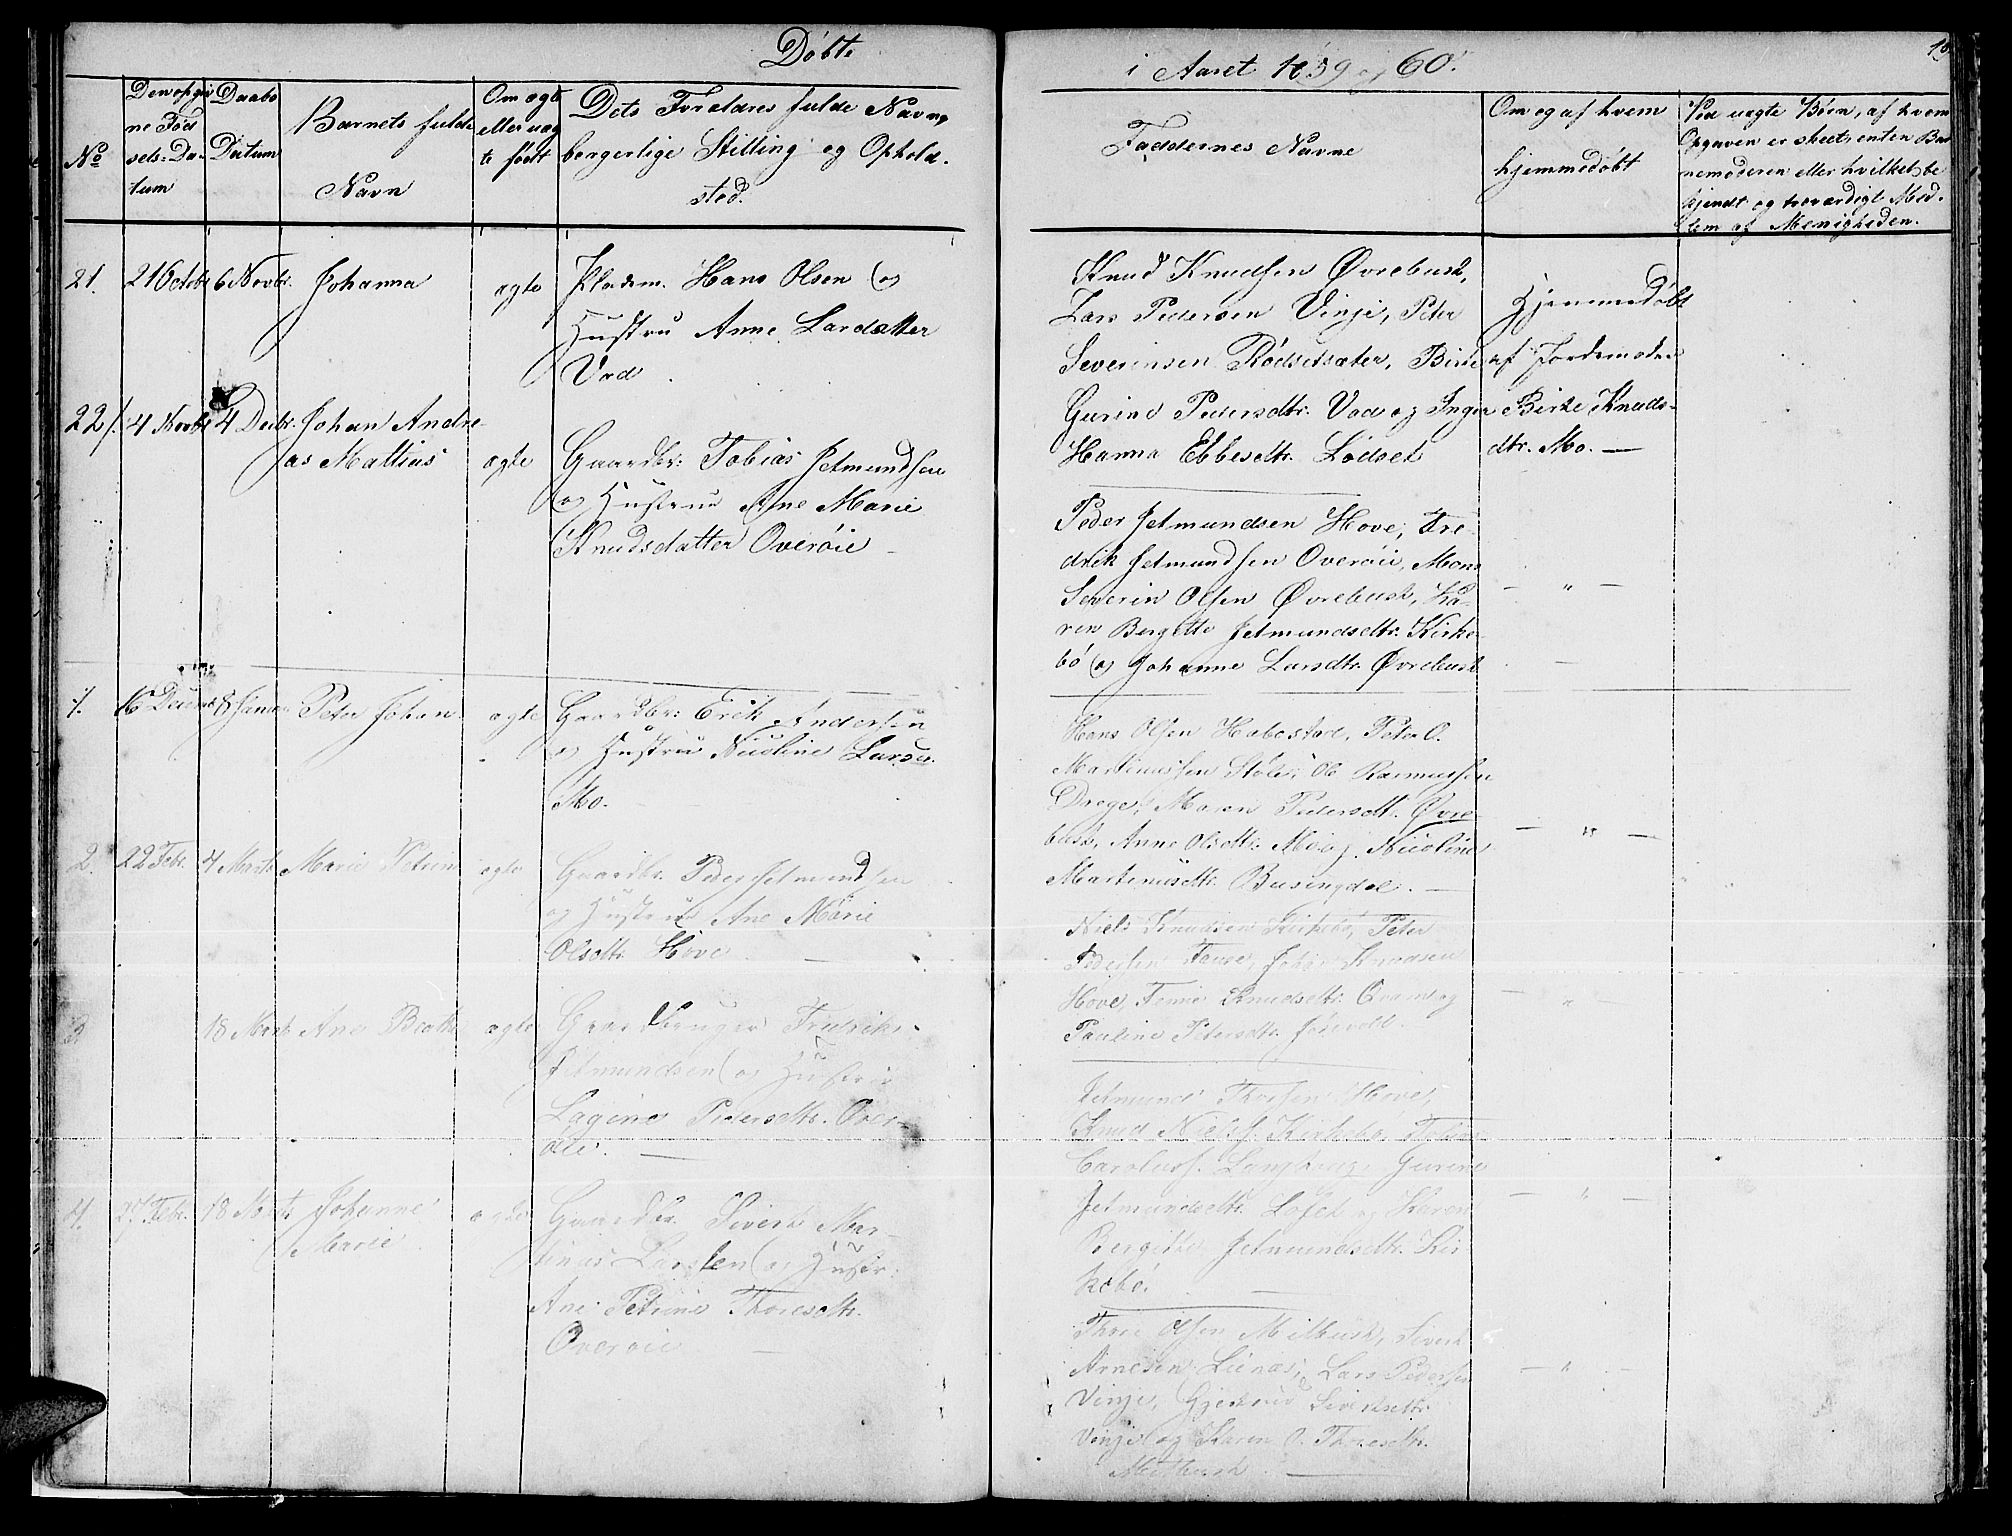 Döbte
i Aaret 1859 og 60.
No
Den opgi
ne Föd
sels-Da-
tum
Daabs
Datum
Barnets fulde
Navn
Om ægte
eller uæg
te födt
Dets Forældres fulde Navn,
borgerlige Stilling og Opholds-
sted.
Faddernes Navne
Om og af hvem
hjemmedöbt
Ved uægte Börn, af hvem
Opgaven er skeet, enten Bar
nemoderen eller hvilket be
kjendt og troværdigt Med-
lem af Menigheden.
21. 21 Octobr 6 Novbr. Johanna ægte
Pladsm. Hans Olsen og
Hustru Anne Larsdatter
Vad
Knud Knudsen Øvrebust,
Lars Pedersen Vinje, Peter
Severinsen Rödsetsæter, Birte
Gurine Pedersdtr. Vad og Inger
Hanna Ebbesdtr. Lödset
Hjemmedöbt
af Jordemoder
Birte Knuds-
dtr. Mo. —
22. 4 Novbr 4 Decbr. Johan Andre-
as Mattias ægte
Gaardbr: Tobias Jetmundsen
og Hustrue Ane Marie
Knudsdatter Overöie —
Peder Jetmundsen Hove, Fre-
drik Jetmundsen Overöie, Mons
Severin Olsen Øvrebust, Ka-
ren Bergitte Jetmundsdtr. Kirke-
bö og Johanne Larsdtr. Øvrebust
— " —
1. 16 Decemb 8 Januar Peter Johan. ægte
Gaardbr: Erik Andersen
og Hustrue Nicoline Larsd.
Mo.
Hans Olsen Habostad, Peter O.
Martinussen Stöle, Ole Rasmussen
Drege, Maren Pedersdt. Øvre-
bust, Anne Olsdtr. Mo og Nicoline
Martinusdtr. Busingdal. —
— " —
2. 22 Febr. 4 Marts Marie Petrine ægte
Gaardbr. Peder Jetmundsen
og Hustrue Ane Marie
Olsdtr. Hove —
Niels Knudsen Kirkebö, Peter
Pedersen Knudsen
Hove, Knudsdtr. og
Pauline Petersdtr.
— " —
3 18 Marts Ane Beathe ægte
Gaardbruger Fredrik
Jetmundsen og Hustrue
Pedersdtr. Over-
öie. —
Jetmund Hove,
Knud Nielss. Kirkebö,
Caroluss. Gurine
Jetmundsdtr. Löset og Karen
Bergitte Jetmundsdtr. Kir-
kebö. —
— " —
4. 27 Febr. 18 Marts Johanne
Marie ægte
Gaardbr. Sivert Mar-
tinus Larssen og Hustr.
Ane Petrine Thoresdtr.
Overöie —
Thore Olsen Mitbust, Sivert
Arnesen Lars Pedersen
Vinje, Gjertrud Sivertsdtr.
Vinje og Karen O. Thoresdtr.
Mitbust. —
— " —